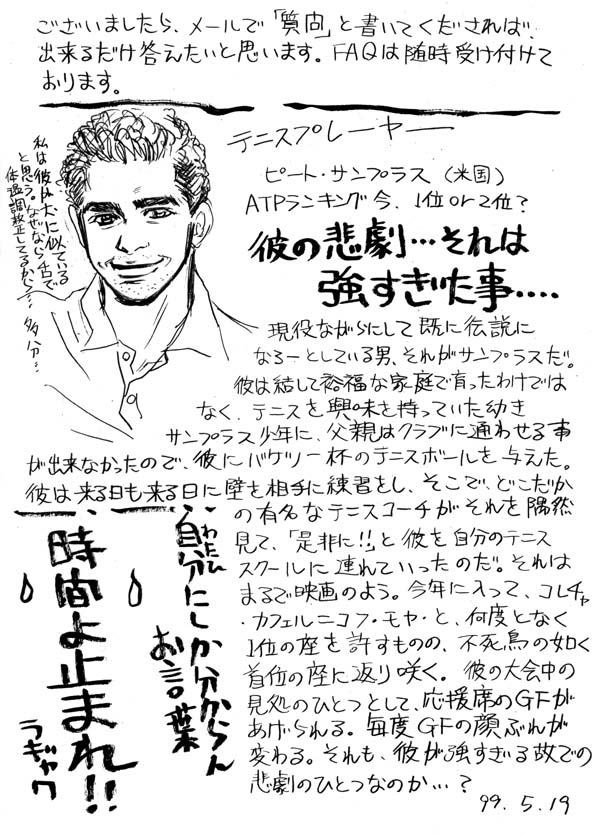 ございましたら、メールで「質問」と書いてくだされば、
出来るだけ答えたいと思います。FAQは随時受け付けて
おります。
テニスプレーヤー
ピート・サンプラス(米国)
ATPランキング今、1位or2位?
彼の悲劇…それは
強すぎた事….
私は彼が犬に似ている
と思う。なぜなら舌で
体温調整してるから…
多分…
現役ながらにして既に伝説に
なろーとしている男、それがサンプラスだ。
彼は結して裕福な家庭で育ったわけでは
なく、テニスを興味を持っていた幼き
サンプラス少年に、父親はクラブに通わせる事
が出来なかったので、彼にバケツ一杯のテニスボールを与えた。
彼は来る日も来る日に壁を相手に練習をし、そこで、どこだか
の有名なテニスコーチがそれを偶然
見て、「是非に!!」と彼を自分のテニス
スクールに連れていったのだ。それは
まるで映画のよう。今年に入って、コレチャ
・カフェルニコフ・モヤ・と、何度となく
1位の座を許すものの、不死鳥の如く
首位の座に返り咲く。彼の大会中の
見処のひとつとして、応援席のGFが
あげられる。毎度GFの顔ぶれが
変わる。それも、彼が強すぎる故での
悲劇のひとつなのか…?
99.5.19
わたし
自分にしか分からん
お言葉
時間よ止まれ!!
ラギャク